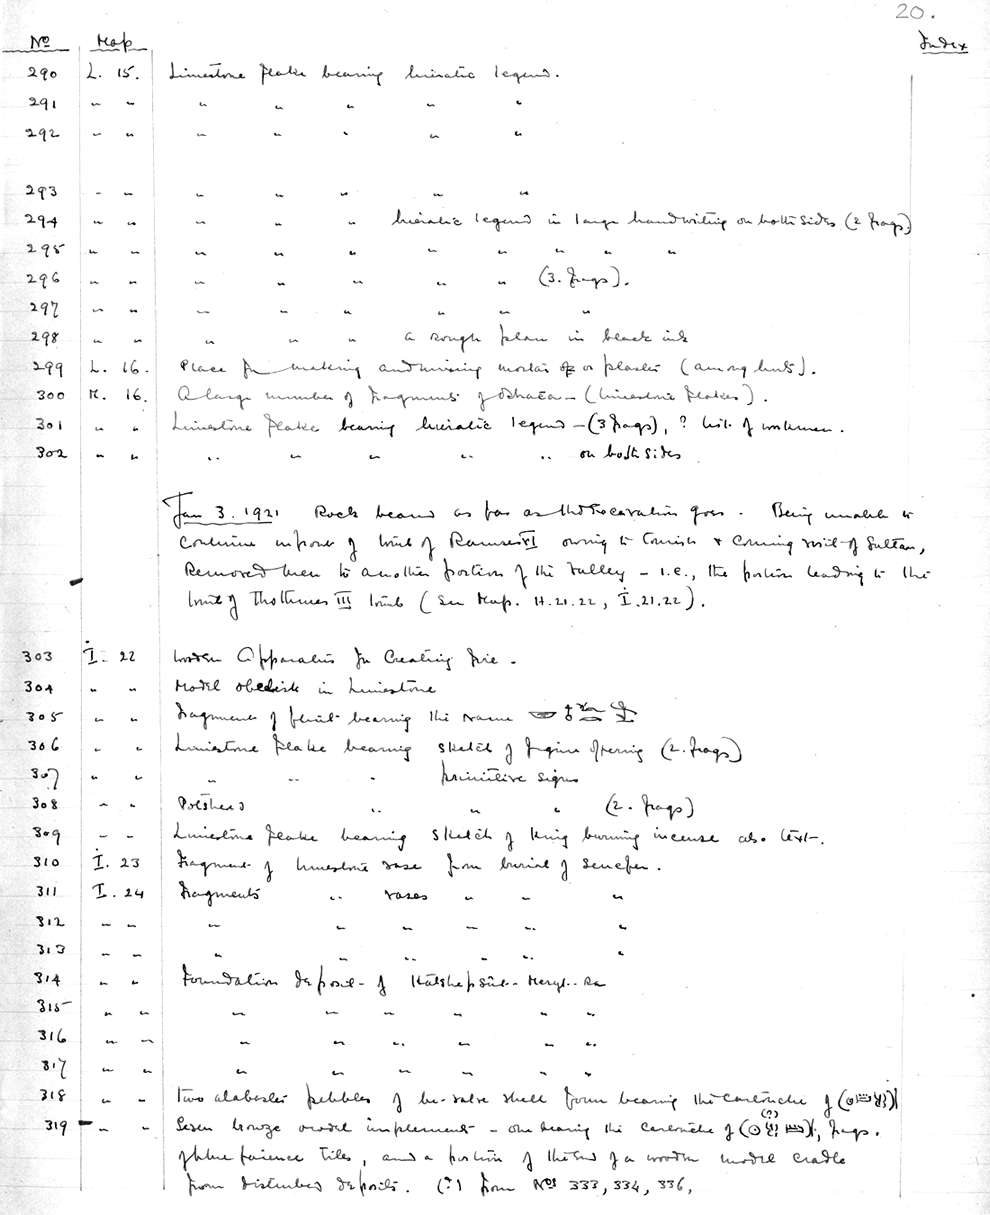 20.
No Map Index
290 L. 15. Limestone flake bearing hieratic legend.
291 " " " " " " "
292 " " " " " " "
293 " " " " " " "
294 " " " " " hieratic legend in large handwriting on both sides (2 frags)
295 " " " " " " " " " "
296 " " " " " " " (3. frags).
297 " " " " " " " "
298 " " " " " a rough plan in black ink
299 L. 16. Place for making and mixing mortar or plaster (among huts).
300 K. 16. A large number of fragments of Ostraca – (limestone flakes).
301 " " Limestone flake bearing hieratic legend – (3 frags), ? list of workmen.
302 " " " " " " " on both sides
Jan 3. 1921 Rock bears as far as the excavation goes. Being unable to
continue in front of tomb of Ramses VI owing to tourists & coming visit of Sultan,
Removed men to another portion of the valley – i.e., the portion leading to the
tomb of Thothmes III tomb (See Map. H.21.22, I.21.22).
303 I. 22 Wooden Apparatus for Creating fire.
304 " " Model obelisk in Limestone
305 " " Fragment of flint bearing the name
306 " " Limestone flake bearing sketch of figure offering (2. frags)
307 " " " " " primitive signs
308 " " Potsherd " " " (2. frags)
309 " " Limestone flake bearing sketch of King burning incense also text.
310 I. 23 Fragment of limestone vase from burial of Senefer.
311 I. 24 Fragments " vases " " "
312 " " " " " " " "
313 " " " " " " " "
314 " " Foundation deposit of Hatshepsût-Meryt-Ra
315 " " " " " " " "
316 " " " " " " " "
317 " " " " " " " "
318 " " Two alabaster pebbles of bi-valve shell form bearing the cartouche of
319 " " Seven bronze model implements – one bearing the cartouche of (?), frags.
of blue faience tiles, and a portion of the end of a wooden model cradle
from disturbed deposits. (?) from Nos 333, 334, 336,